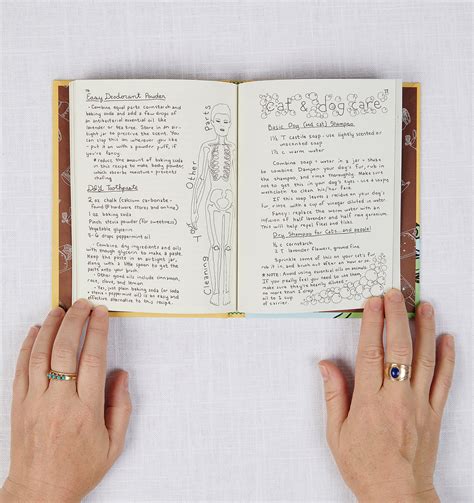 Easy Deodorant Powder
- Combine equal parts cornstarch
and baking soda and add a few drops of
an antibacterial essential oil like
lavender or tea tree. Store in an air-
tight jar to preserve the scent. You
can slap this on wherever you like
- put it on with a powder puff, if
you're fancy.
* reduce the amount of baking soda
in this recipe to make body powder
which absorbs moisture + prevents
chafing
DIY Toothpaste
2 oz. chalk (calcium carbonate -
found @ hardware stores and online)
1 oz baking soda
Pinch stevia powder (for sweetness)
Vegetable glycerin
5-6 drops peppermint oil
Combine dry ingredients and oils
with enough glycerin to make a paste.
Keep the paste in an airtight jar,
along with a little spoon to get the
paste onto your brush.
Other oils to include:
clove, and lemon
* Yes, just plain baking soda (or soda
+ stevia + peppermint oil) is an easy and
effective alternative to this recipe.
Cleaning
Other
Parts
77
cat & dog care
Basic Dog (and cat) Shampoo
1/2 T castile soap - use lightly scented or
unscented soap
1/2 c. warm water
Combine soap + water in a jar - shake
to combine. Dampen your dog's fur, rub in
the shampoo, and rinse thoroughly. Make sure
not to get this in your dog's eyes - use a soapy
washcloth to clean his/her face.
If this soap leaves a residue on your dog's
fur, rinse with a cup of vinegar diluted in water.
Fancy: replace the warm water with an
infusion of half lavender and half rine geranium.
This will help repel flies and ticks.
Dry Shampoo for Cats.. and people!
1/2 c cornstarch
2 T lavender flowers, ground fine
Sprinkle some of this on your cat's fur,
rub it in, and brush out. Makes him/her smell nice!
* NOTE: Avoid using essential oils on animals.
If you really feel you need to use them,
make sure they're heavily diluted -
no more than 2 drops
oil to 1 cup
of carrier.